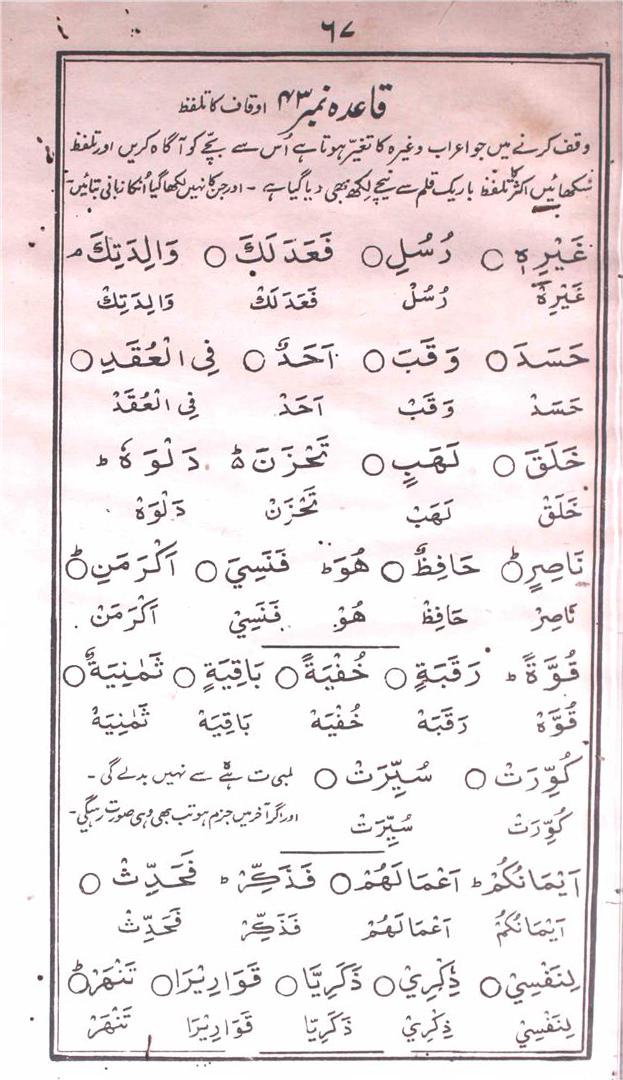 ۶۷
قاعدہ نمبر ۴۳ اوقاف کا تلفظ
وقف کرنے میں جو اعراب وغیرہ کا تغیّر ہوتا ہے اُس سے بچّے کو آگاہ کریں اور تلفظ
سکھائیں اکثر کا تلفظ باریک قلم سے نیچے لکھ بھی دیا گیا ہے ۔ اور جن کا نہیں لکھا گیا اُنکا زبانی بتائیں۔
غَيْرِهٖ ○ رُسُلِ ○ فَعَدَلَكَ ○ وَالِدَتِكَ م
غَيْرِهْ رُسُلْ فَعَدَلَكْ وَالِدَتِكْ
حَسَدَ ○ وَقَبَ ○ اَحَدٌ ○ فِى الْعُقَدِ ○
حَسَدْ وَقَبْ اَحَدْ فِى الْعُقَدْ
خَلَقَ ○ لَهَبٍ ○ تَحْزَنَ ؕ دَلْوَهٗ ؕ
خَلَقْ لَهَبْ تَحْزَنْ دَلْوَهْ
نَاصِرٍ ○ؕ حَافِظٌ ○ هُوَ ؕ فَنَسِيَ ○ اَكْرَمَنِ ○ؕ
نَاصِرْ حَافِظْ هُوْ فَنَسِيْ اَكْرَمَنْ
قُوَّةً ؕ رَقَبَةٍ ○ خُفْيَةً ○ بَاقِيَةٍ ○ ثَمٰنِيَةٌ ○
قُوَّهْ رَقَبَهْ خُفْيَهْ بَاقِيَهْ ثَمٰنِيَهْ
كُوِّرَتْ ○ سُيِّرَتْ ○ لمبی ت ہے سے نہیں بدلے گی ۔
كُوِّرَتْ سُيِّرَتْ اور اگر آخر میں جزم ہو تب بھی وہی صورت رہیگی۔
اَيْمَانُكُمْ ؕ اَعْمَالَهُمْ ○ فَذَكِّرْ ؕ فَحَدِّثْ ○
اَيْمَانُكُمْ اَعْمَالَهُمْ فَذَكِّرْ فَحَدِّثْ
لِنَفْسِيْ ○ ذِكْرِيْ ○ زَكَرِيَّا ○ قَوَارِيْرَا ○ تَنْهَرْ ○ؕ
لِنَفْسِيْ ذِكْرِيْ زَكَرِيَّا قَوَارِيْرَا تَنْهَرْ